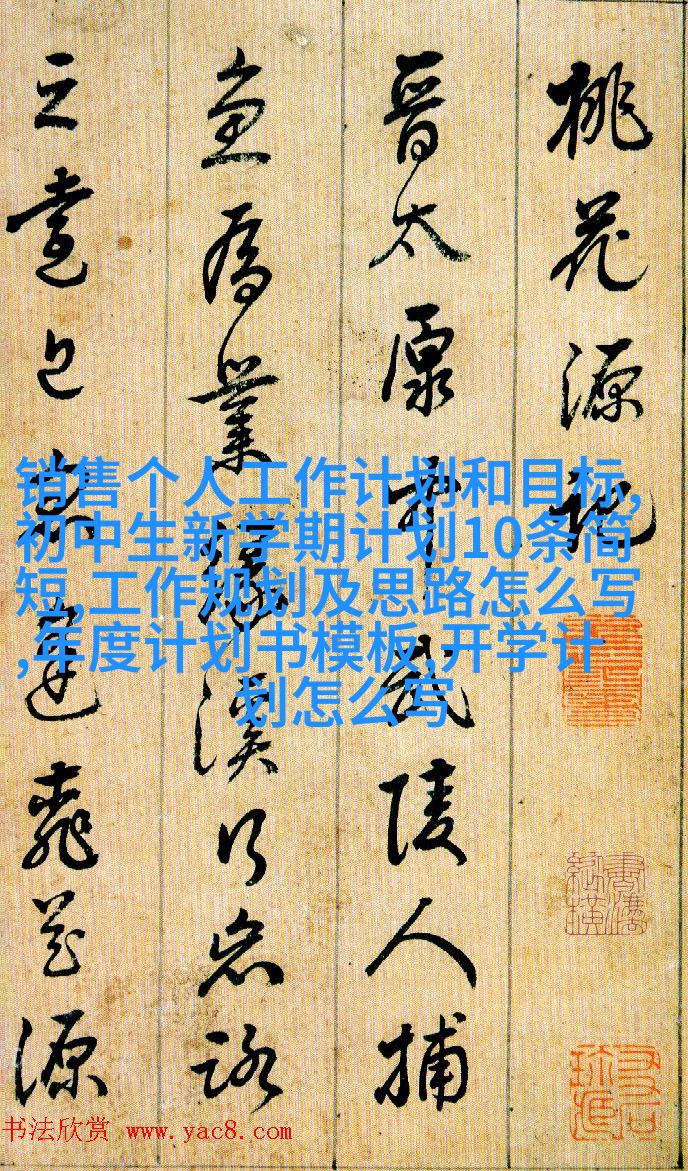 桃花源記
晉太原中武陵人捕
魚為業緣溪行忘路
之 源
销售个人工作计划和目标,
初中生新学期计划10条简
短,工作规划及思路怎么写
,年度计划书模板,开学计
划怎么写
书法欣赏 www.yac8.com